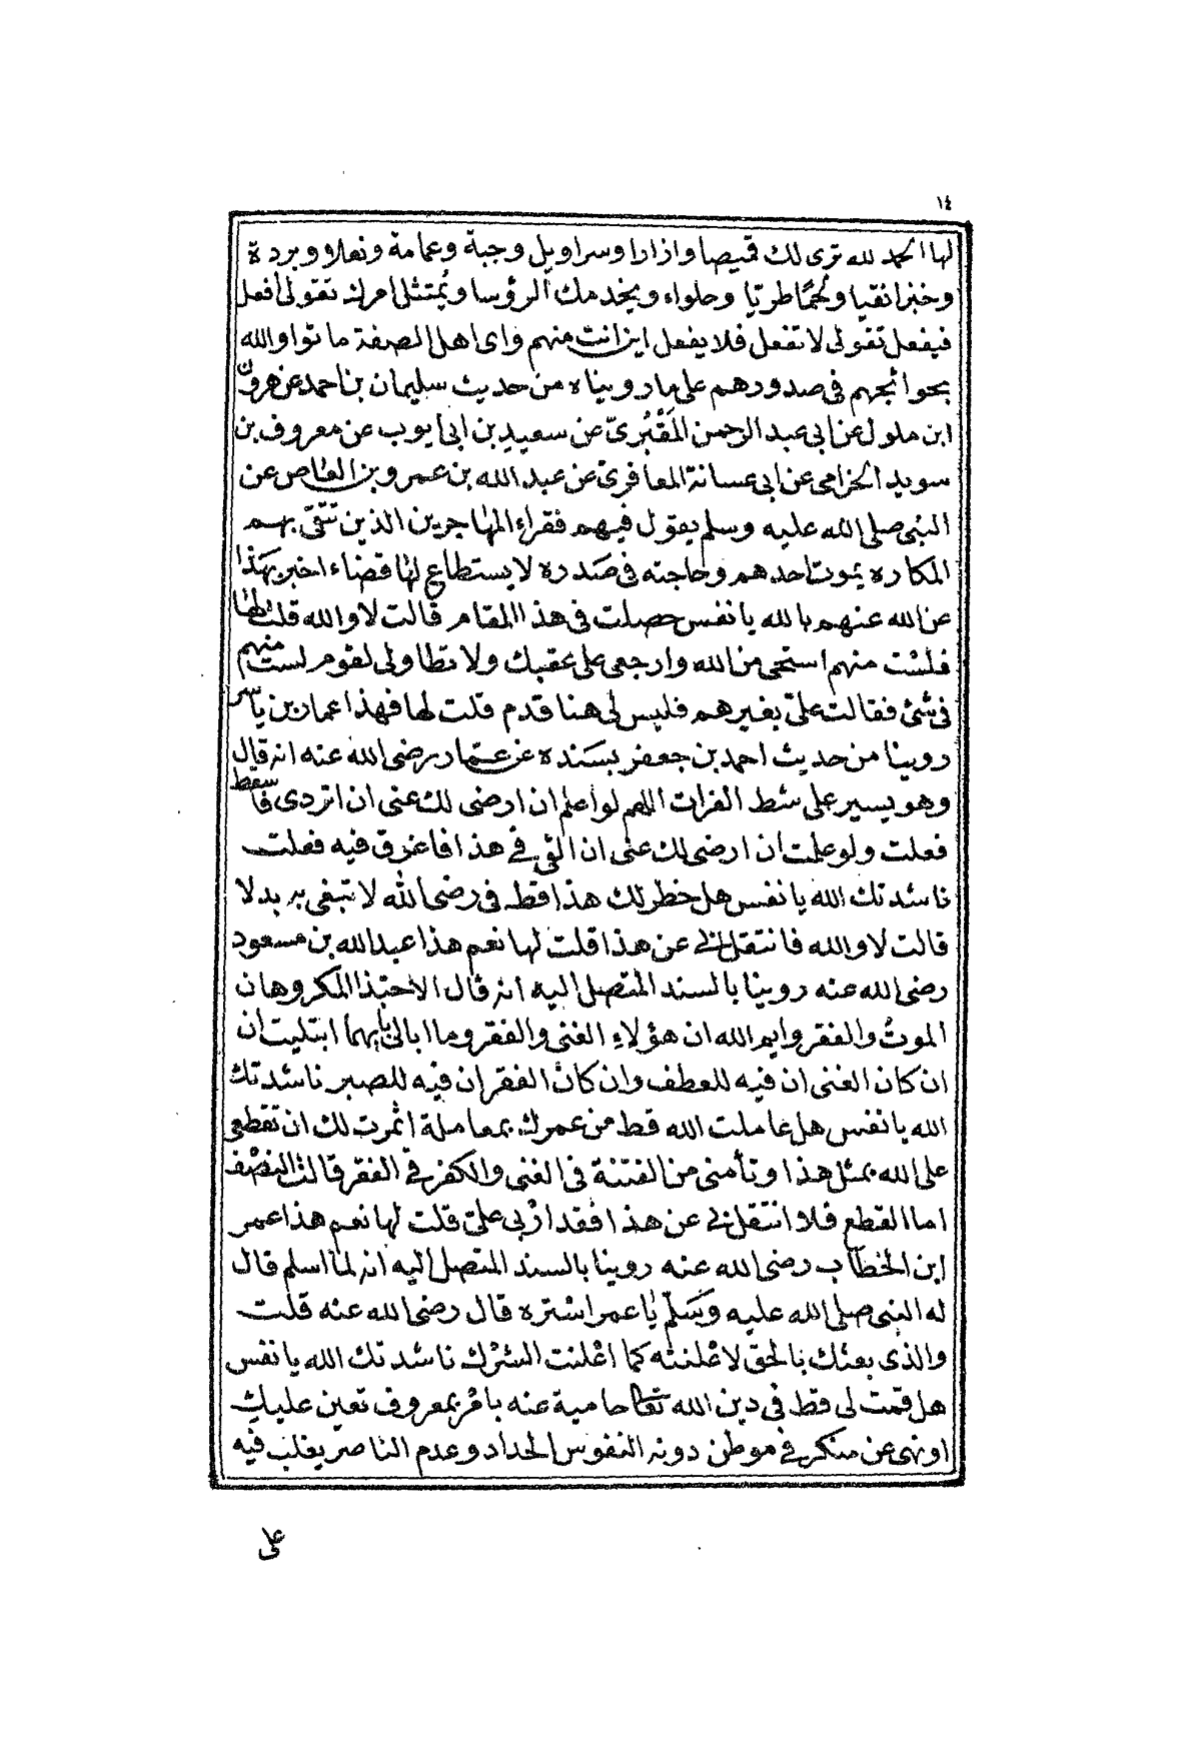 ١٤
لها الحمد لله ترى لك قميصا وازارا وسراويل وجبة وعمامة ونعلاو وبردة
وخبزا نقيا ولحمًا طريّا وحلواء ويخدمك الرؤسا ويُمتثل امرك تقولى افعل
فيفعل تقولى لا تفعل فلا يفعل اين انت منهم واى اهل الصفة ماتوا والله
بحوائجهم فى صدورهم على ما روبناه من حديث سليمان بن احمد عن هرون
ابن ملول عن ابى عبد الرحمن المَقْبُرىّ عن سعيد بن ابى ايوب عن معروف بن
سويد الخزامى عن ابى عسانة المعافرىّ عن عبد الله بن عمرو بن العاص عن
النبى صلى الله عليه وسلم يقول فيهم فقراء المهاجرين الذين تتقى بهم
المكاره يموت احدهم وحاجته فى صدره لا يستطاع لها قضاء اخبر بهذا
عن الله عنهم بالله يا نفس حصلت فى هذا المقام قالت لا والله قلت لها
فلست منهم استحى من الله وارجعى على عقبك ولا تطاولى لقوم لست منهم
فى شئ فقالت علىّ بغيرهم فليس لى هنا قدم قلت لها فهذا عمار بن ياسر
روينا من حديث احمد بن جعفر بسنده عن عمار رضى الله عنه انه قال
وهو يسير على شط الفرات اللهم لو اعلم ان ارضى لك عنى ان اتردى فاسقط
فعلت ولو علمت ان ارضى لك عنى ان القى فى هذا فاغرق فيه فعلت
ناشدتك الله يا نفس هل خطر لك هذا قط فى رضى الله لا تبغى به بدلا
قالت لا والله فانتقل لى عن هذا قلت لها نعم هذا عبد الله بن مسعود
رضى الله عنه روينا بالسند المتصل اليه انه قال الا حبّذا المكروهان
الموتُ والفقر وايم الله ان هؤلاءِ الغنى والفقر وما ابالى بايهما ابتليت ان
ان كان الغنى ان فيه للعطف وان كان الفقر ان فيه للصبر ناشدتك
الله يا نفس هل عاملت الله قط من عمرك بمعاملة اثمرت لك ان تقطعى
على الله بمثل هذا وتأمنى من الفتنة فى الغنى والكفر فى الفقر قالت النصْف
اما القطع فلا انتقل لى عن هذا فقد اربى علىّ قلت لها نعم هذا عمر
ابن الخطاب رضى الله عنه روينا بالسند المتصل اليه انه لما اسلم قال
له النبى صلى الله عليه وسلّم يا عمر استره قال رضى الله عنه قلت
والذى بعثك بالحق لاعْلننّه كما اعْلنت الشرك ناشدتك الله يا نفس
هل قمت لى قط فى دين الله تعا حامية عنه بامر بمعروف تعين عليكِ
او نهى عن منكر فى موطن دونه النفوس الحداد وعدم الناصر يغلب فيه
على